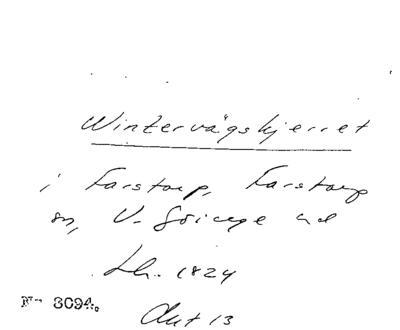 Wintervägskjerret
i Farstorp, Farstorp
sn, V. Göinge hd
Lh. 1824
Nº 3094.
Akt 13